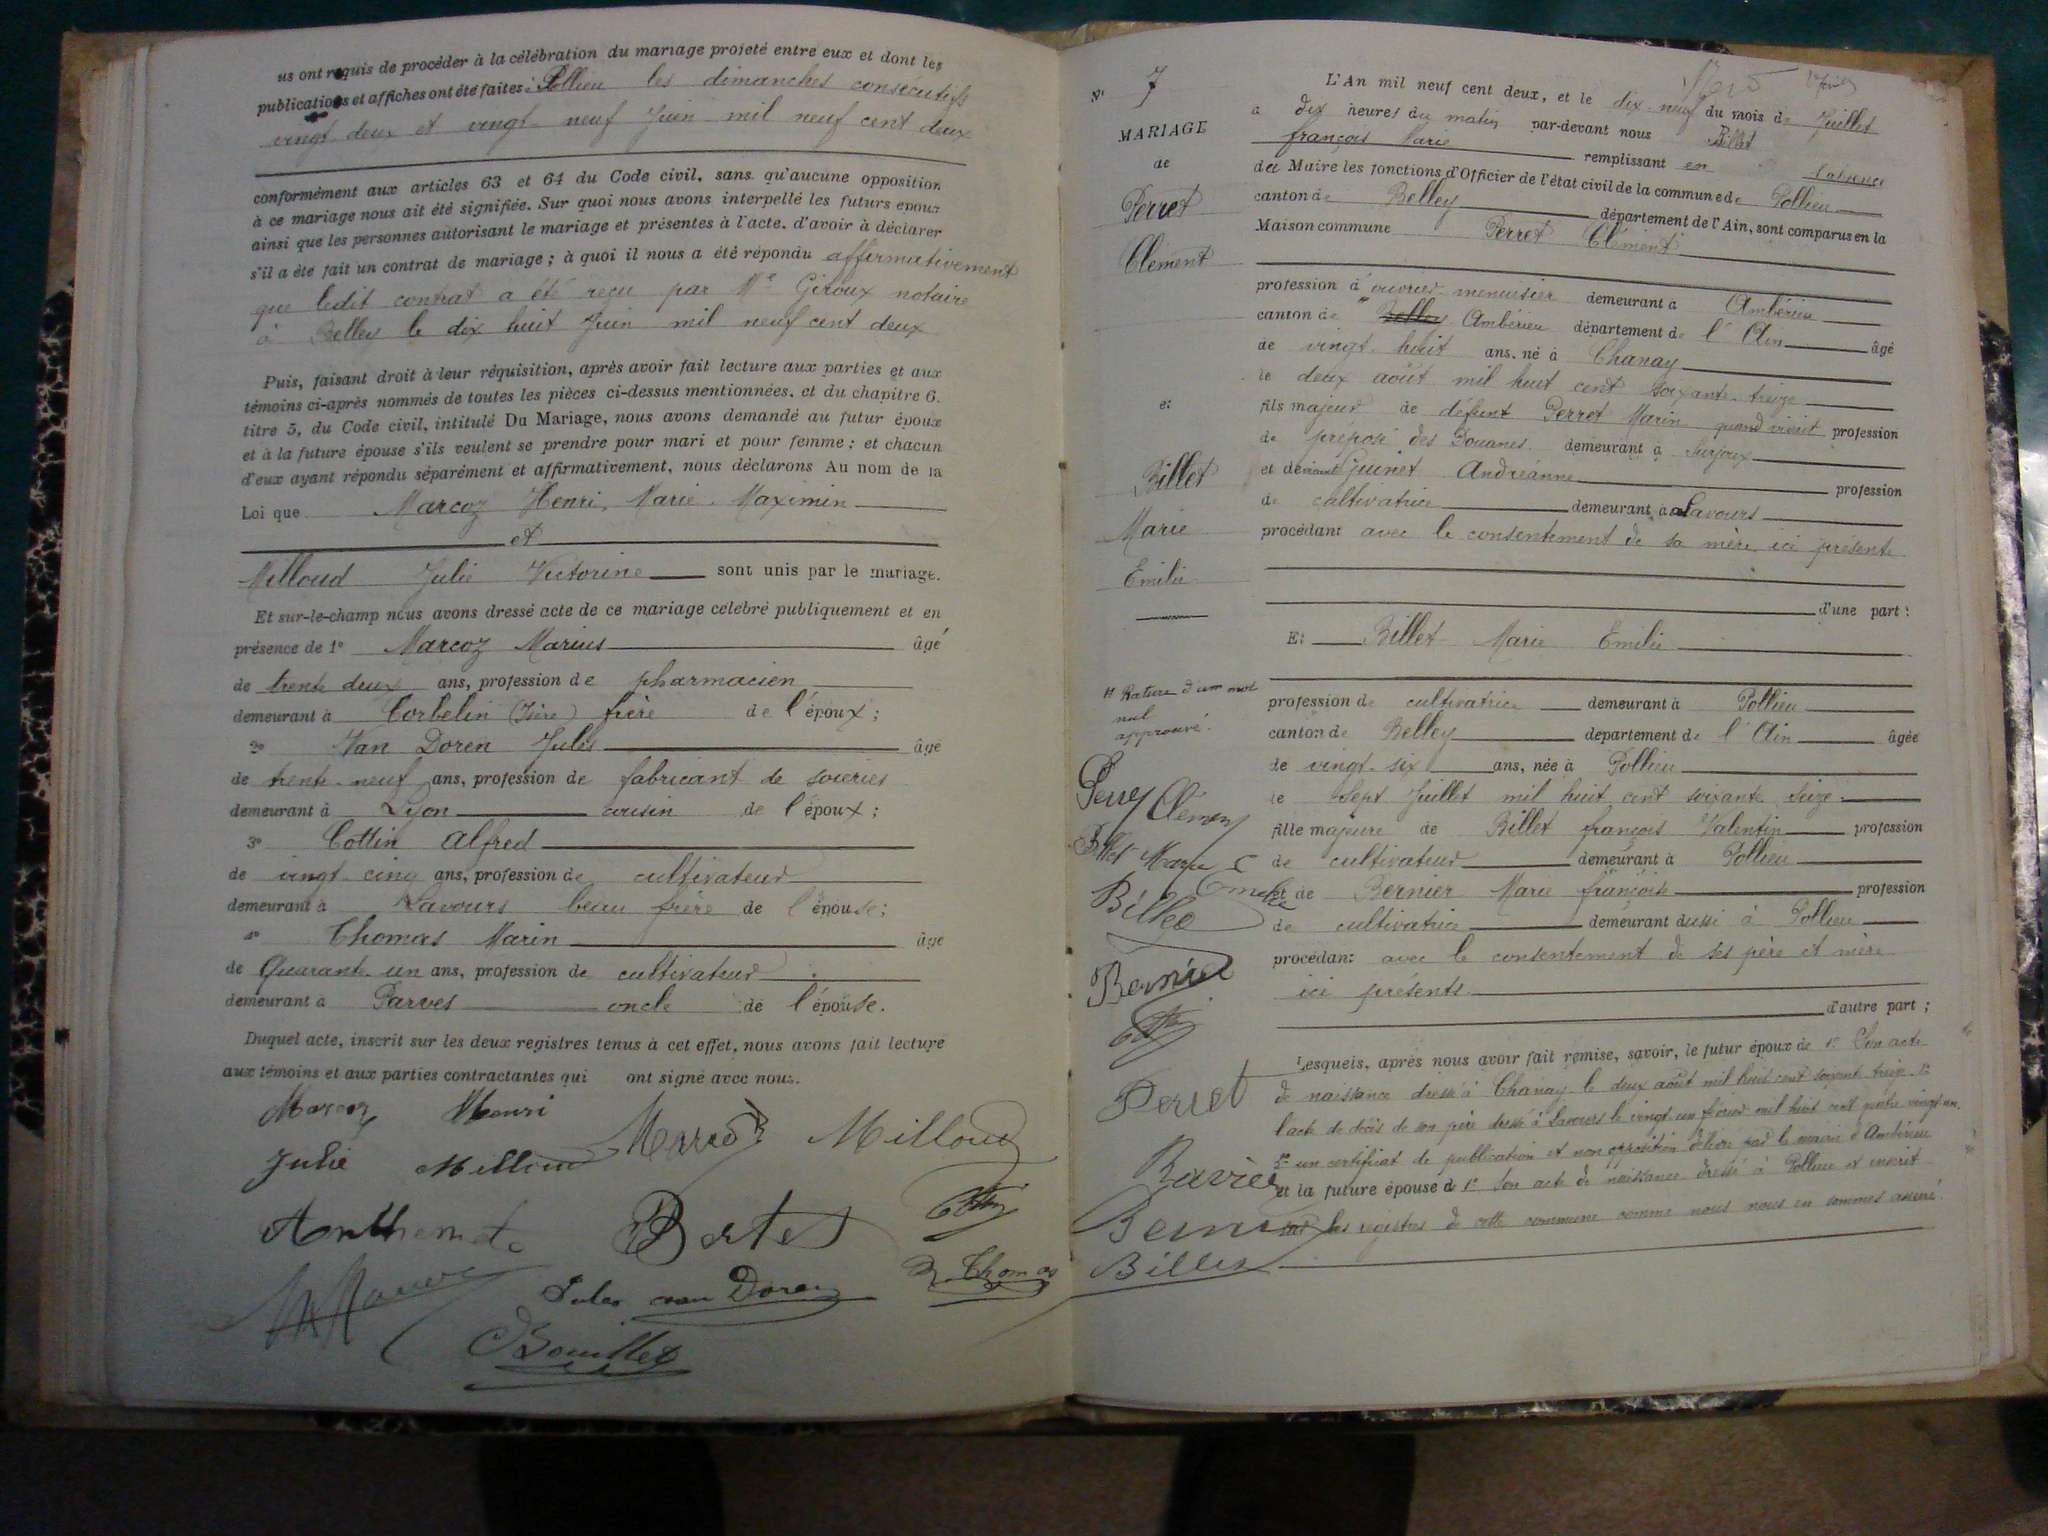 us ont requis de procéder à la célébration du mariage projeté entre eux et dont les
publications et affiches ont été faites à Pollieu les dimanches consécutifs
vingt deux et vingt-neuf Juin mil neuf cent deux
conformément aux articles 63 et 64 du Code civil, sans qu'aucune opposition
à ce mariage nous ait été signifiée. Sur quoi nous avons interpellé les futurs époux
ainsi que les personnes autorisant le mariage et présentes à l'acte, d'avoir à déclarer
s'il a été fait un contrat de mariage ; à quoi il nous a été répondu affirmativement
que ledit contrat a été reçu par Me Giroux notaire
à Belley le dix huit Juin mil neuf cent deux
Puis, faisant droit à leur réquisition, après avoir fait lecture aux parties et aux
témoins ci-après nommés de toutes les pièces ci-dessus mentionnées, et du chapitre 6,
titre 5, du Code civil, intitulé Du Mariage, nous avons demandé au futur époux
et à la future épouse s'ils veulent se prendre pour mari et pour femme ; et chacun
d'eux ayant répondu séparément et affirmativement, nous déclarons Au nom de la
Loi que Marcoz Henri, Marie Maximin
et
Milloud Julie Victorine sont unis par le mariage.
Et sur-le-champ nous avons dressé acte de ce mariage célébré publiquement et en
présence de 1° Marcoz Marius âgé
de trente deux ans, profession de pharmacien
demeurant à Corbelin (Isère) frère de l'époux ;
2° Van Doren Jules âgé
de trente-neuf ans, profession de fabricant de soieries
demeurant à Lyon cousin de l'époux ;
3° Cottin Alfred
de vingt-cinq ans, profession de cultivateur
demeurant à Lavours beau frère de l'épouse ;
4° Thomas Marin âgé
de Quarante-un ans, profession de cultivateur
demeurant à Parves oncle de l'épouse.
Duquel acte, inscrit sur les deux registres tenus à cet effet, nous avons fait lecture
aux témoins et aux parties contractantes qui ont signé avec nous.
Marcoz Henri Marcoz Milloud
Julie Milloud
Bertet
M. Thomas
Jules van Doren
Bouillet
N° 7
MARIAGE
de
Perret
Clément
et
Billet
Marie
Emilie
Rature d'un mot
nul
approuvé.
Perret Clément
Billet Marie
Emilie
Billet
Bernier
Perret
Bavier
Bernier
Billet
L'An mil neuf cent deux, et le dix-neuf du mois de Juillet
a dix heures du matin par-devant nous Billet
françois Marie remplissant en l'absence
du Maire les fonctions d'Officier de l'état civil de la commune de Pollieu
canton de Belley département de l'Ain, sont comparus en la
Maison commune Perret Clément
profession d'ouvrier menuisier demeurant à Ambérieu
canton de Belley Ambérieu département de l'Ain âgé
de vingt-huit ans, né à Chanay
le deux août mil huit cent soixante-treize
fils majeur de défunt Perret Marin quand vivait profession
de préposé des Douanes demeurant à Surjoux
et de Guinet Andréanne profession
de cultivatrice demeurant à Lavours
procédant avec le consentement de sa mère ici présente
d'une part :
Et Billet Marie Emilie
profession de cultivatrice demeurant à Pollieu
canton de Belley département de l'Ain âgée
de vingt-six ans, née à Pollieu
le sept Juillet mil huit cent soixante seize
fille majeure de Billet françois Valentin profession
de cultivateur demeurant à Pollieu
et de Bernier Marie françoise profession
de cultivatrice demeurant aussi à Pollieu
procédant avec le consentement de ses père et mère
ici présents
d'autre part ;
Lesquels, après nous avoir fait remise, savoir, le futur époux de 1° Son acte
de naissance dressé à Chanay le deux août mil huit cent soixante treize. 2°
l'acte de décès de son père dressé à Lavours le vingt-un février mil huit cent quatre vingt-un.
3° un certificat de publication et non opposition délivré par le maire d'Ambérieu
et la future épouse de 1° Son acte de naissance dressé à Pollieu et inscrit
sur les registres de cette commune comme nous nous en sommes assuré.